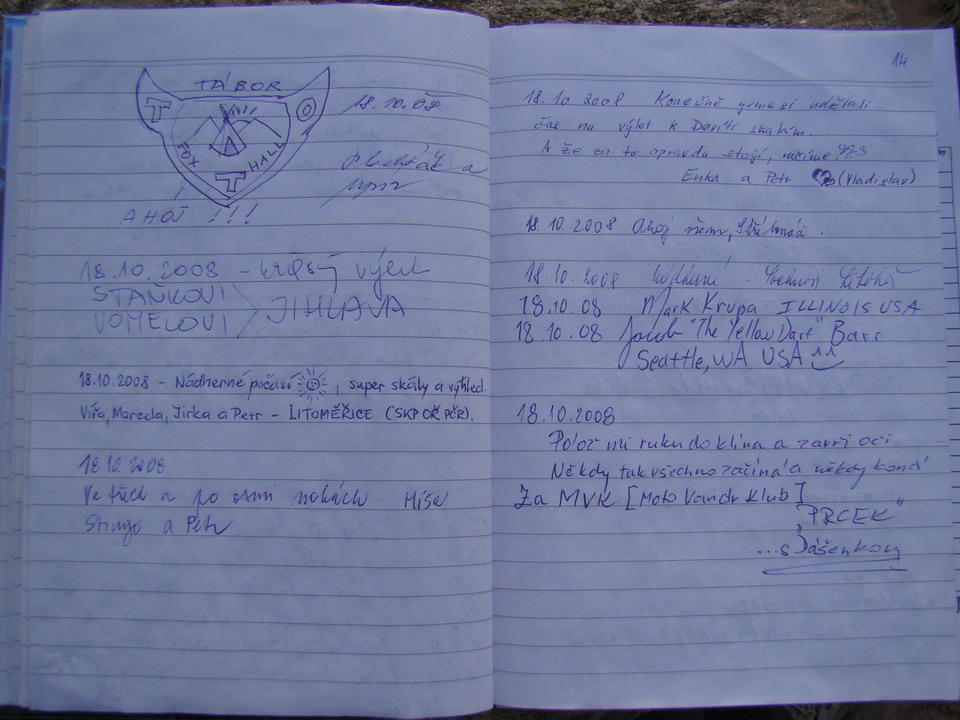 TÁBOR
T
O
FOX
HALL
T
AHOJ !!!
18.10.08
a
18.10.2008 - krásný výlet
STAŇKOVI
VOMELOVI
JIHLAVA
18.10.2008 - Nádherné počasí, super skály a výhled.
Víťa, Marcela, Jirka a Petr - LITOMĚŘICE (SKP OŘ PČR).
18.10.2008
Ve třech a po osmi nohách Míša
Stingo a Petr
14
18.10 2008 Konečně jsme si udělali
čas na výlet k skalám...
A že za to opravdu stojí,
Erika a Petr (Vladislav)
18.10.2008 Ahoj všem,
18.10.2008 Nádherné -
18.10.08 Mark Krupa ILLINOIS USA
18.10.08 Jacob "The Yellow Dart" Barr
Seattle, WA USA
18.10.2008
Polož mi ruku do klína a zavři oči.
Někdy tak všechno začíná a někdy končí.
Za MVK [Moto Vandr Klub]
"PRCEK"
...s Dášenkou